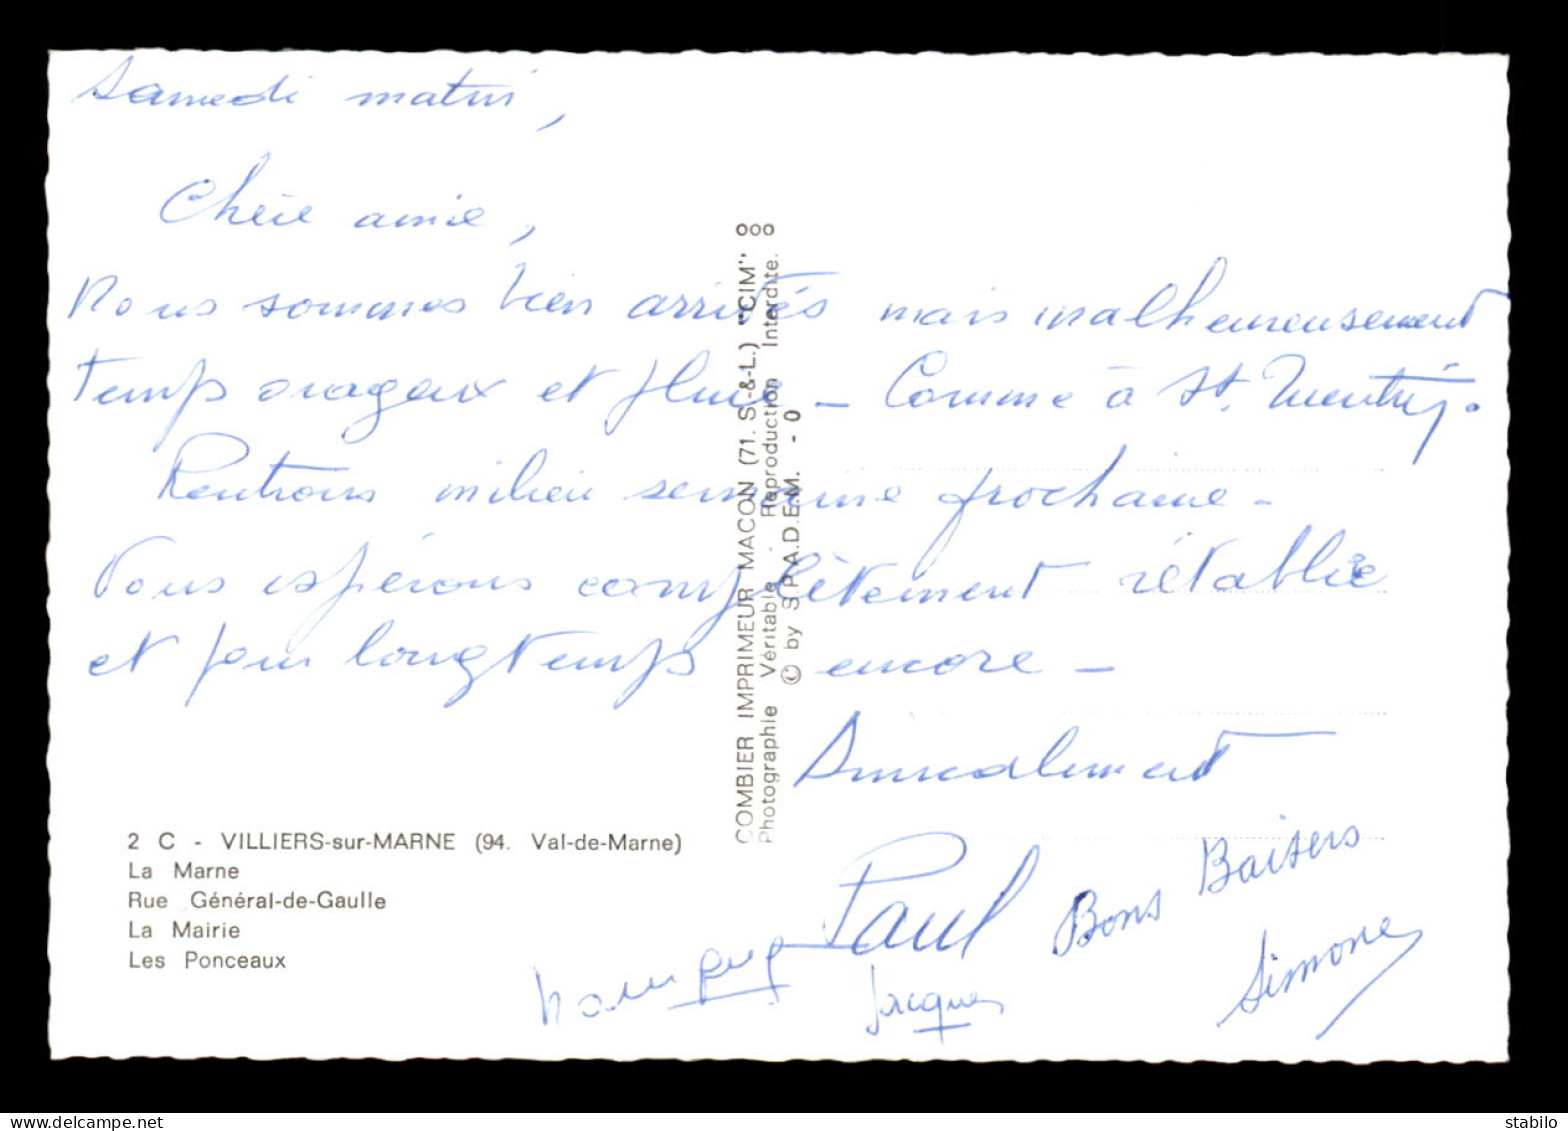 Samedi matin,
Chère amie,
Nous sommes bien arrivés mais malheureusement
temps orageux et pluie - Comme à St.
Rentrons milieu semaine prochaine -
Vous espérons complètement rétablie
et pour longtemps encore -
Amicalement
Paul
Bons Baisers
Jacques
Simone
2 C - VILLIERS-sur-MARNE (94. Val-de-Marne)
La Marne
Rue Général-de-Gaulle
La Mairie
Les Ponceaux
COMBIER IMPRIMEUR MACON (71. S.-&-L.) "CIM"
Photographie Véritable - Reproduction Interdite.
© by S.P.A.D.E.M. - 0
www.delcampe.net
stabilo